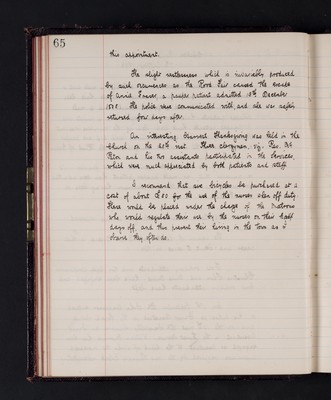 65
this appointment.
The slight restlessness which is invariably produced
by such occurrences as the Poor Fair caused the escape
of David Fraser, a pauper patient admitted 18th December
The police were communicated with, and was safely
returned four days after.
An interesting Harvest Thanksgiving was held in the
Church on the 20th inst. Three clergymen, viz. Rev. Mr
and his two assistants participated in the services,
which were much appreciated by both patients and staff.
I recommend that six bicycles be purchased at a
cost of about £50 for the use of the nurses when off duty.
These would be placed under the charge of the Matron
who would regulate their use by the nurses on their half
days off, and thus prevent their having in the town as
they often do.